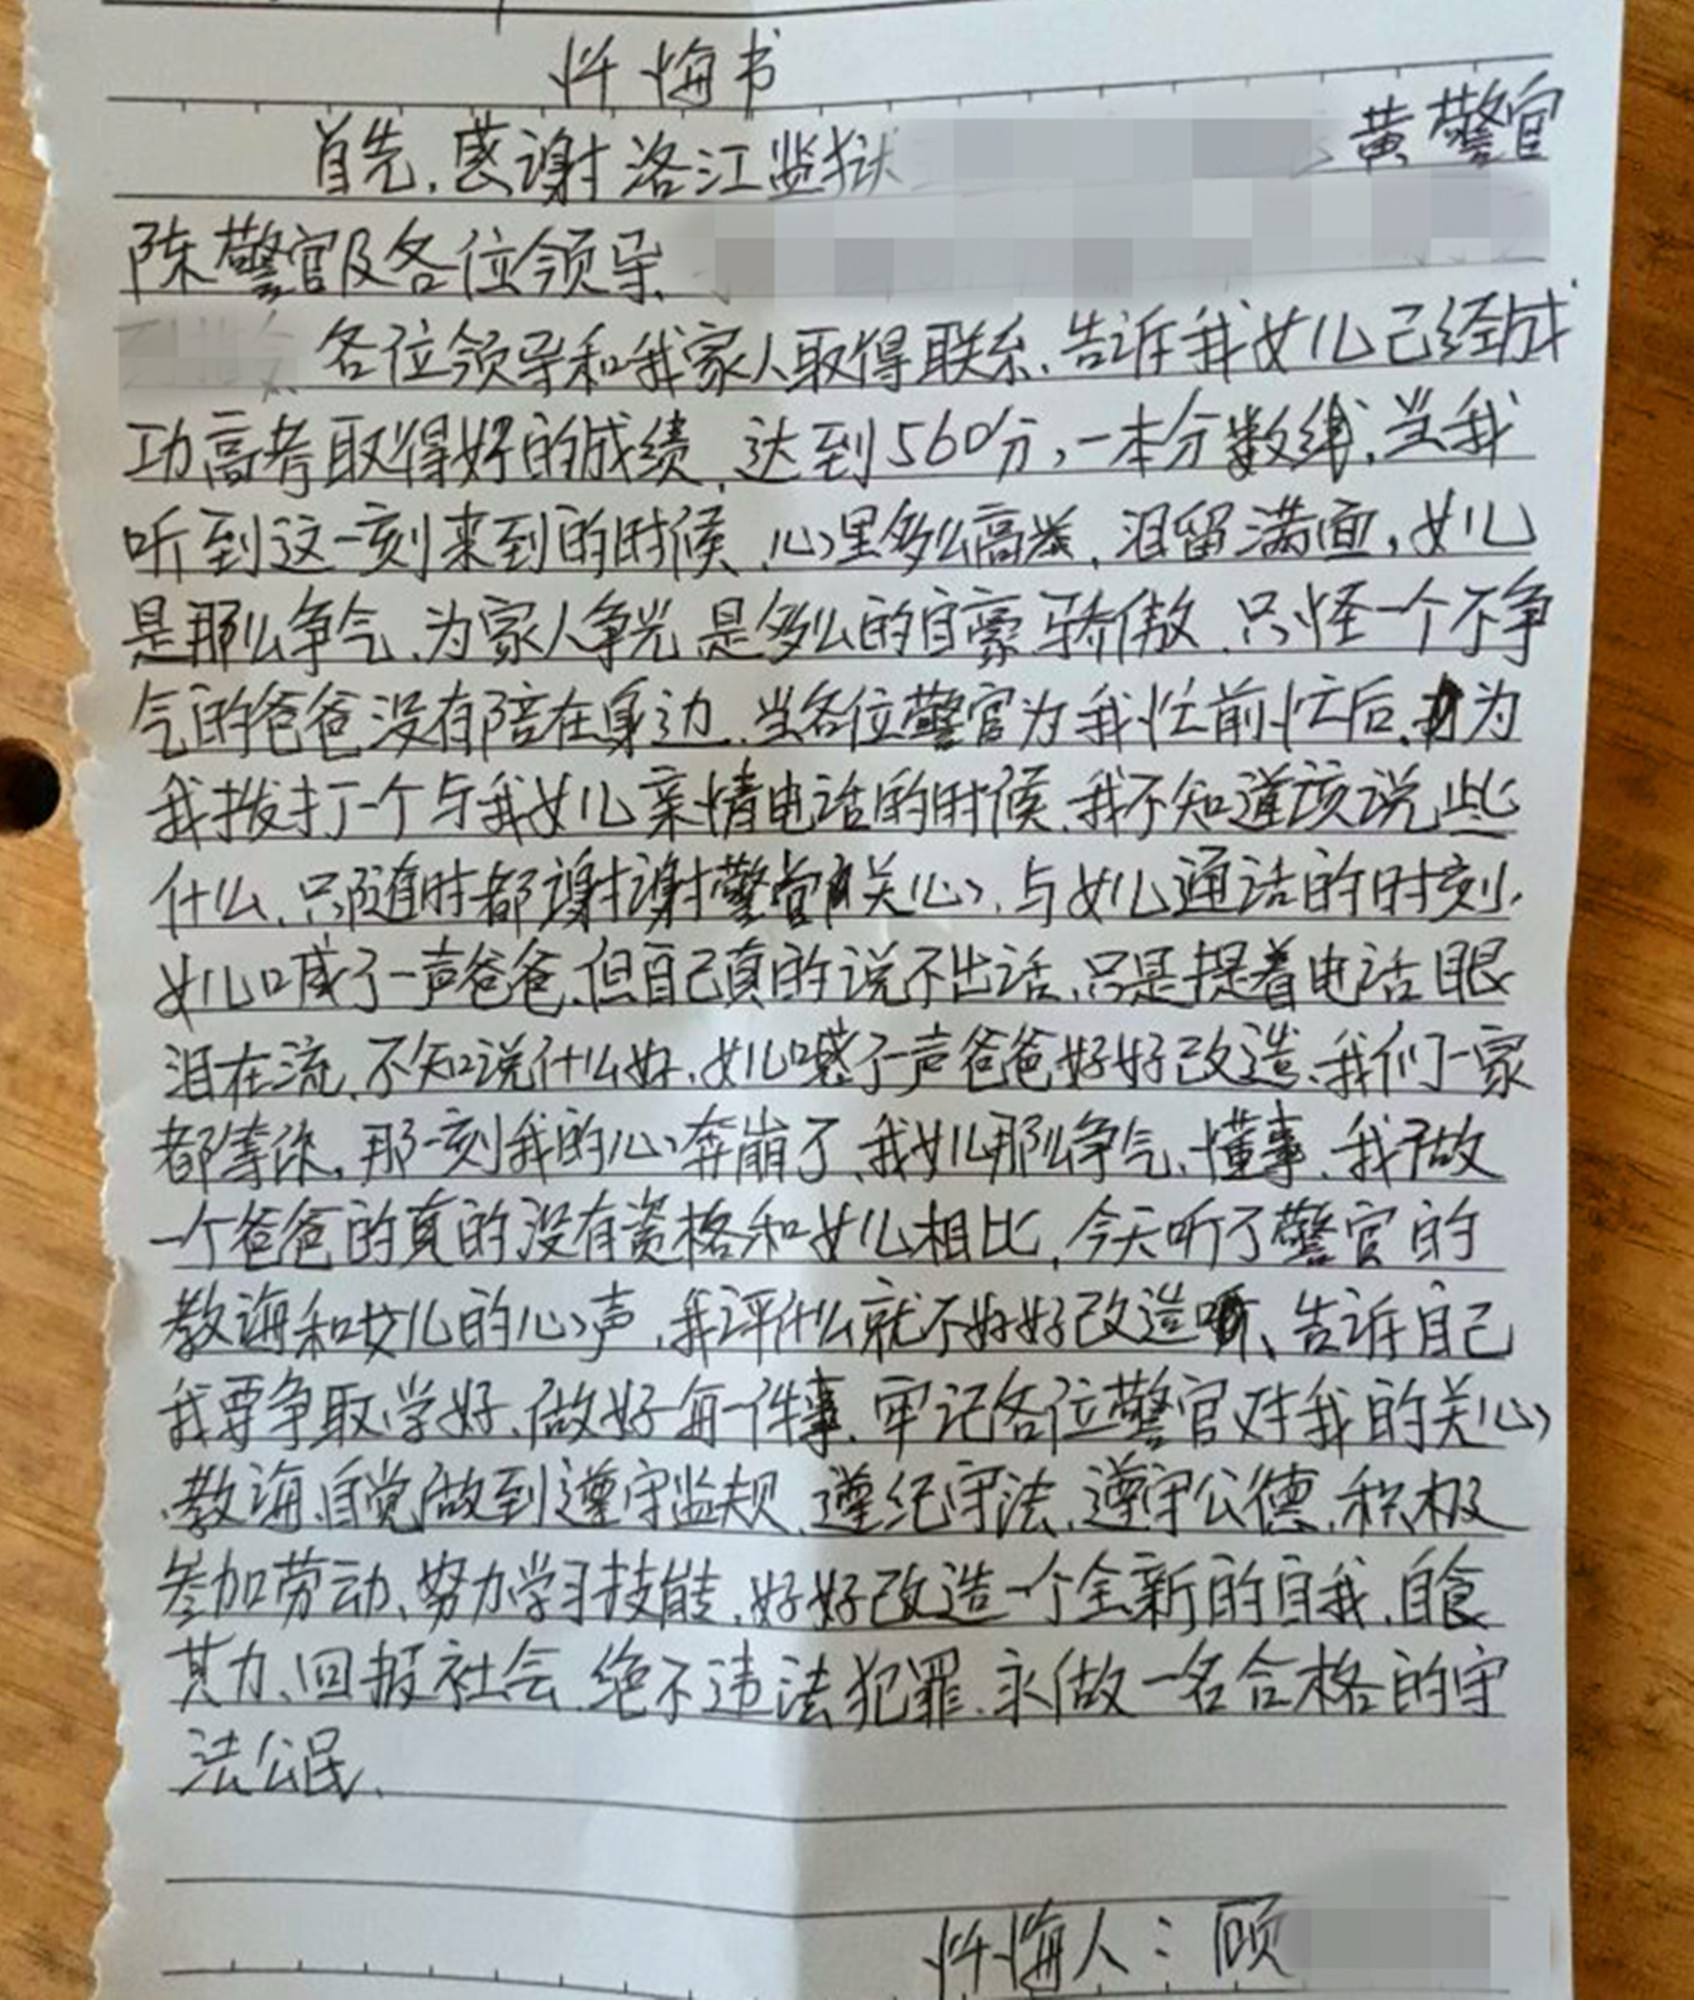 忏悔书
首先,感谢洛江监狱 黄警官
陈警官及各位领导、
各位领导和我家人取得联系、告诉我女儿已经成
功高考取得好的成绩、达到560分,一本分数线,当我
听到这一刻来到的时候、心里多么高兴、泪留满面,女儿
是那么争气、为家人争光、是多么的自豪、骄傲、只怪一个不争
气的爸爸没有陪在身边、当各位警官为我忙前忙后、为
我拨打一个与我女儿亲情电话的时候、我不知道该说些
什么、只随时都谢谢警官关心、与女儿通话的时刻,
女儿喊了一声爸爸、但自己真的说不出话、只是提着电话眼
泪在流、不知说什么好、女儿喊了一声爸爸好好改造、我们一家
都等你。那一刻我的心奔崩了、我女儿那么争气、懂事、我做
一个爸爸的真的没有资格和女儿相比,今天听了警官的
教海和女儿的心声,我评什么就不好好改造、告诉自己
我要争取学好、做好每一件事、牢记各位警官对我的关心
、教海、自觉做到遵守监规、遵纪守法、遵守公德、积极
参加劳动、努力学习技能、好好改造一个全新的自我、自食
其力、回报社会、绝不违法犯罪、永做一名合格的守
法公民、
忏悔人:顾